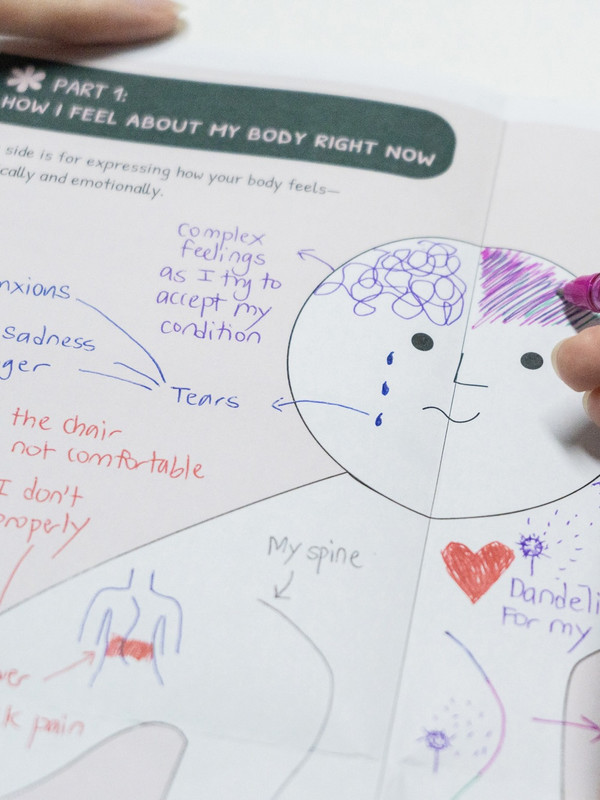 PART 1:
HOW I FEEL ABOUT MY BODY RIGHT NOW
side is for expressing how your body feels—
cally and emotionally.
complex
feelings
as I try to
accept my
condition
nxious
sadness
ger
Tears
the chair
not comfortable
I don't
properly
My spine
ver
k pain
Dandeli
For my